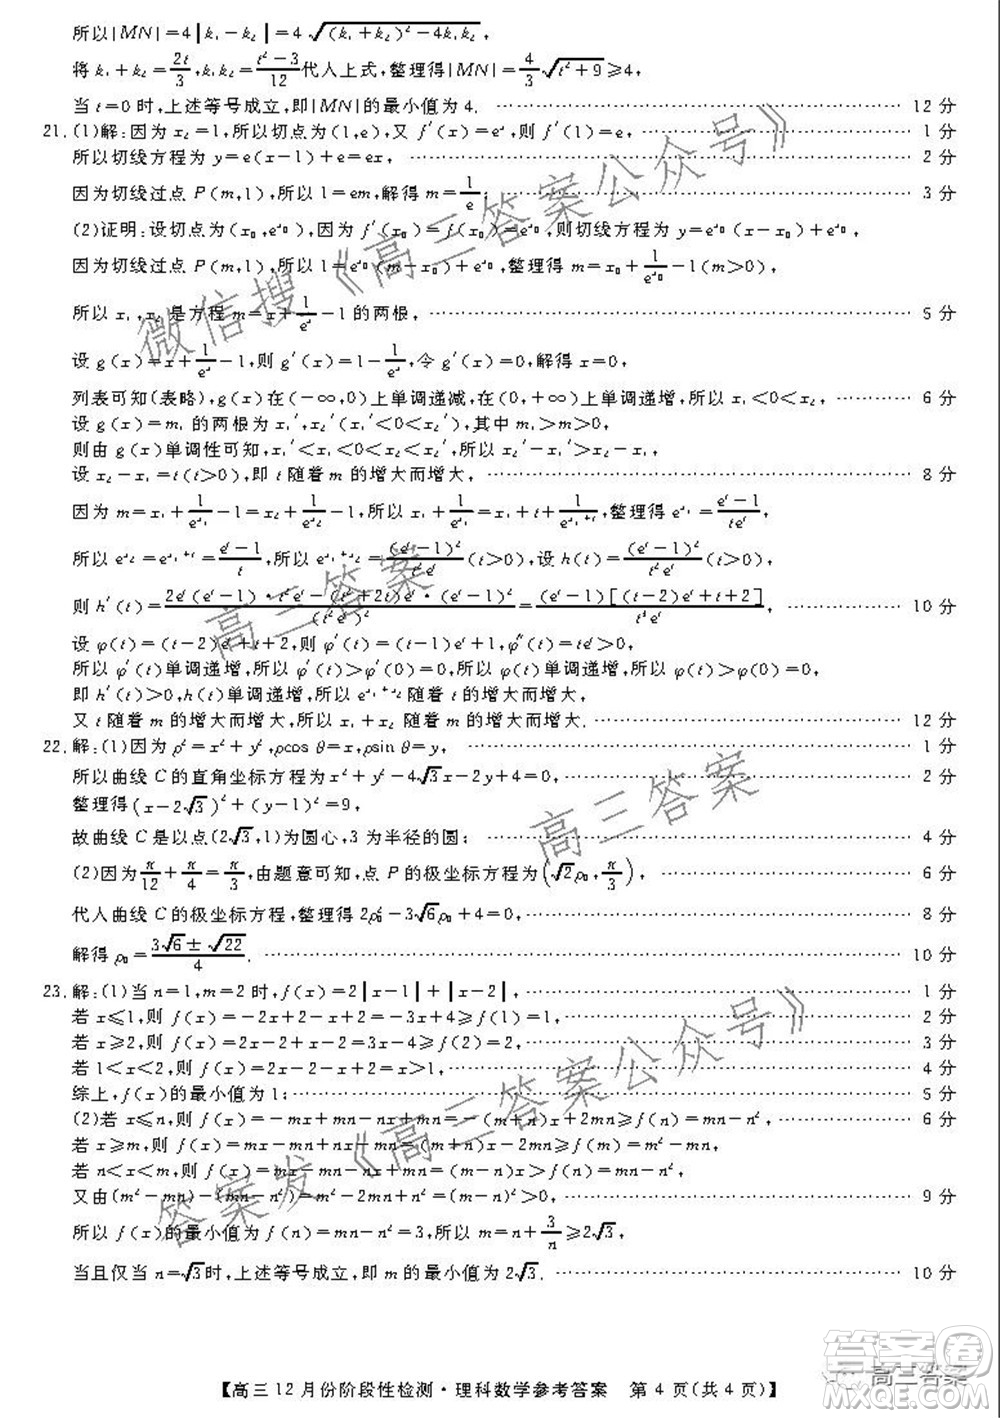 所以|MN|=4|k₁-k₂|=4√((k₁+k₂)²-4k₁k₂),
将 k₁+k₂=2t/3,k₁k₂=(t²-3)/12代入上式,整理得|MN|=4/3√(t²+9)≥4,
当 t=0 时,上述等号成立,即|MN|的最小值为 4. …… 12 分
21.(1)解:因为 x₂=1,所以切点为(1,e),又 f′(x)=eˣ,则 f′(1)=e, …… 1 分
所以切线方程为 y=e(x-1)+e=ex, …… 2 分
因为切线过点 P(m,1),所以 1=em,解得 m=1/e; …… 3 分
(2)证明:设切点为(x₀,e^x₀),因为 f′(x₀)=f(x₀)=e^x₀,则切线方程为 y=e^x₀(x-x₀)+e^x₀,
因为切线过点 P(m,1),所以 1=e^x₀(m-x₀)+e^x₀,整理得 m=x₀+1/e^x₀-1(m>0),
所以 x₁,x₂ 是方程 m=x+1/eˣ-1 的两根, …… 5 分
设 g(x)=x+1/eˣ-1,则 g′(x)=1-1/eˣ,令 g′(x)=0,解得 x=0,
列表可知(表略),g(x)在(-∞,0)上单调递减,在(0,+∞)上单调递增,所以 x₁<0<x₂, …… 6 分
设 g(x)=m₁ 的两根为 x₁′,x₂′(x₁′<0<x₂′),其中 m₁>m>0,
则由 g(x)单调性可知,x₁′<x₁<0<x₂<x₂′,所以 x₂′-x₁′>x₂-x₁,
设 x₂-x₁=t(t>0),即 t 随着 m 的增大而增大, …… 8 分
因为 m=x₁+1/e^x₁-1=x₂+1/e^x₂-1,所以 x₁+1/e^x₁=x₁+t+1/e^(x₁+t),整理得 e^x₁=(eᵗ-1)/(teᵗ),
所以 e^x₂=e^(x₁+t)=(eᵗ-1)/t,所以 e^(x₁+x₂)=(eᵗ-1)²/(t²eᵗ)(t>0),设 h(t)=(eᵗ-1)²/(t²eᵗ)(t>0),
则 h′(t)=(2eᵗ(eᵗ-1)·t²eᵗ-(t²+2t)eᵗ·(eᵗ-1)²)/(t²eᵗ)²=(eᵗ-1)[(t-2)eᵗ+t+2]/(t³eᵗ), …… 10 分
设 φ(t)=(t-2)eᵗ+t+2,则 φ′(t)=(t-1)eᵗ+1,φ″(t)=teᵗ>0,
所以 φ′(t)单调递增,所以 φ′(t)>φ′(0)=0,所以 φ(t)单调递增,所以 φ(t)>φ(0)=0,
即 h′(t)>0,h(t)单调递增,所以 e^(x₁+x₂)随着 t 的增大而增大,
又 t 随着 m 的增大而增大,所以 x₁+x₂ 随着 m 的增大而增大. …… 12 分
22.解:(1)因为 ρ²=x²+y²,ρcos θ=x,ρsin θ=y, …… 1 分
所以曲线 C 的直角坐标方程为 x²+y²-4√3x-2y+4=0, …… 2 分
整理得(x-2√3)²+(y-1)²=9,
故曲线 C 是以点(2√3,1)为圆心,3 为半径的圆; …… 4 分
(2)因为π/12+π/4=π/3,由题意可知,点 P 的极坐标方程为(√2ρ₀,π/3), …… 6 分
代入曲线 C 的极坐标方程,整理得 2ρ₀²-3√6ρ₀+4=0, …… 8 分
解得 ρ₀=(3√6±√22)/4. …… 10 分
23.解:(1)当 n=1,m=2 时,f(x)=2|x-1|+|x-2|, …… 1 分
若 x≤1,则 f(x)=-2x+2-x+2=-3x+4≥f(1)=1, …… 2 分
若 x≥2,则 f(x)=2x-2+x-2=3x-4≥f(2)=2, …… 3 分
若 1<x<2,则 f(x)=2x-2-x+2=x>1, …… 4 分
综上,f(x)的最小值为 1; …… 5 分
(2)若 x≤n,则 f(x)=-mx+mn-nx+mn=-(m+n)x+2mn≥f(n)=mn-n², …… 6 分
若 x≥m,则 f(x)=mx-mn+nx-mn=(m+n)x-2mn≥f(m)=m²-mn,
若 n<x<m,则 f(x)=mx-mn-nx+mn=(m-n)x>mn-n²,
又由(m²-mn)-(mn-n²)=m²-2mn+n²=(m-n)²>0, …… 9 分
所以 f(x)的最小值为 f(n)=mn-n²=3,所以 m=n+3/n≥2√3,
当且仅当 n=√3时,上述等号成立,即 m 的最小值为 2√3. …… 10 分
【高三 12 月份阶段性检测·理科数学参考答案 第 4 页(共 4 页)】
微信搜《高三答案公众号》
高三答案
高三答案
答案发《高三答案公众号》
答案圈
高三答案